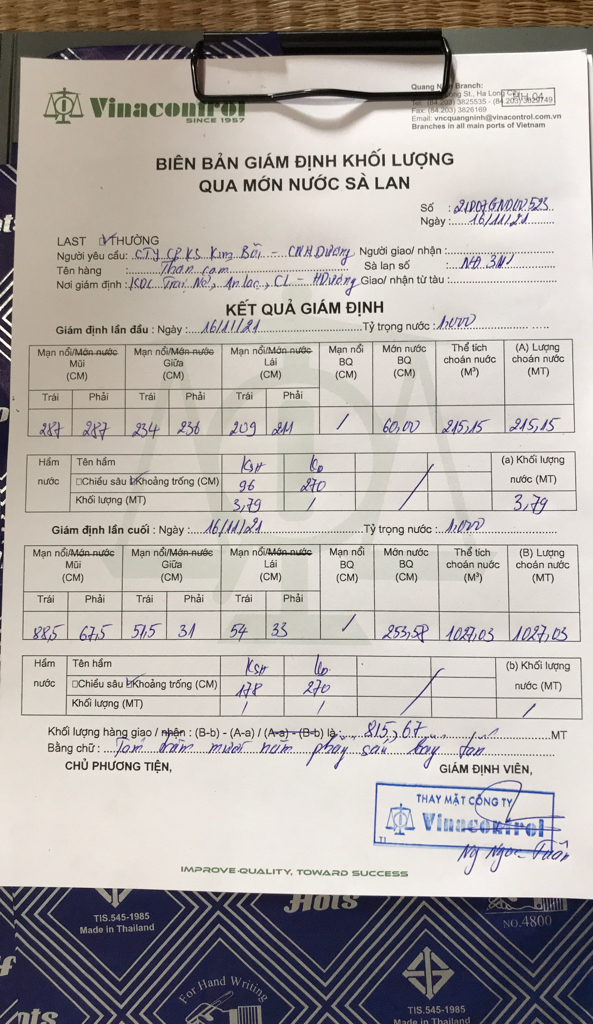 Vinacontrol
SINCE 1957
Quang Branch:
St., Ha Long
Tel: (84.203) 3825535 - (84.203) 3829749
BH 04
Fax: (84.203) 3826169
Email: vncquangninh@vinacontrol.com.vn
Branches in all main ports of Vietnam
BIÊN BẢN GIÁM ĐỊNH KHỐI LƯỢNG
QUA MỚN NƯỚC SÀ LAN
Số :
Ngày : 16/11/21
LAST THƯỜNG
Người yêu cầu: CTY CP KS Kim Bôi - CNHDương Người giao/ nhận :
Tên hàng : Than cam Sà lan số :
Nơi giám định : KDC An lạc, CL - HDương Giao/ nhận từ tàu :
KẾT QUẢ GIÁM ĐỊNH
Giám định lần đầu : Ngày : 16/11/21 Tỷ trọng nước : 1.000
Mạn nổi/Món nước Mũi (CM) Mạn nổi/Món nước Giữa (CM) Mạn nổi/Món nước Lái (CM) Mạn nổi BQ (CM) Món nước BQ (CM) Thể tích choán nước (M³) (A) Lượng choán nước (MT)
Trái Phải Trái Phải Trái Phải
287 287 234 236 209 211 / 60,00 215,15 215,15
Hầm nước Tên hầm KSH (a) Khối lượng nước (MT)
Chiều sâu Khoảng trống (CM) 96 270
Khối lượng (MT) 3,79 / 3,79
Giám định lần cuối : Ngày : 16/11/21 Tỷ trọng nước : 1.000
Mạn nổi/Món nước Mũi (CM) Mạn nổi/Món nước Giữa (CM) Mạn nổi/Món nước Lái (CM) Mạn nổi BQ (CM) Món nước BQ (CM) Thể tích choán nước (M³) (B) Lượng choán nước (MT)
Trái Phải Trái Phải Trái Phải
88,5 67,5 51,5 31 54 33 / 253,58 1027,03 1027,03
Hầm nước Tên hầm KSH (b) Khối lượng nước (MT)
Chiều sâu Khoảng trống (CM) 178 270
Khối lượng (MT) / / /
Khối lượng hàng giao / nhận : (B-b) - (A-a) / (A-a) - (B-b) là : 815,67 MT
Bằng chữ : Tám trăm mười năm phảy sáu bảy tấn
CHỦ PHƯƠNG TIỆN, GIÁM ĐỊNH VIÊN,
THAY MẶT CÔNG TY
Vinacontrol
Ng Ngọc Tuấn
IMPROVE QUALITY, TOWARD SUCCESS
TIS.545-1985
Made in Thailand
Hots
NO.4800
For Hand Writing
TIS.545-1985
Made in Thailand